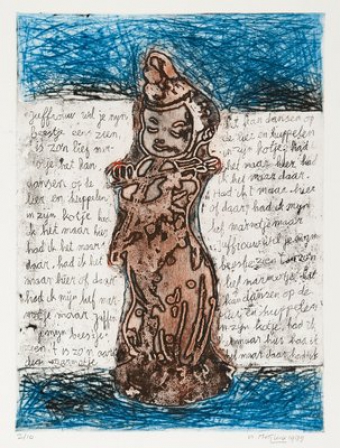 Juffrouw wil je mijn
beestje eens zien,
is zo'n lief mar-
motje het kan
dansen op de
leer en huppelen
in zijn kotje had
ik het maar hier
had ik het maar
daar, had ik het
maar hier of daar
had ik mijn lief mar-
motje maar Juffrou
mijn beestje
zien, 't is zo'n
marmotje
't kan dansen op
de leer en huppelen
in zijn kotje, had ik
het maar hier had
ik het maar daar.
Had ik 't maar hier
of daar, had ik mijn
marmotje maar
Juffrouw wil je mijn
beestje zien 't is een
lief marmotje, het
kan dansen op de
leer en huppelen
in zijn kotje had ik
het maar hier had ik
het maar daar had ik
2/10
1979